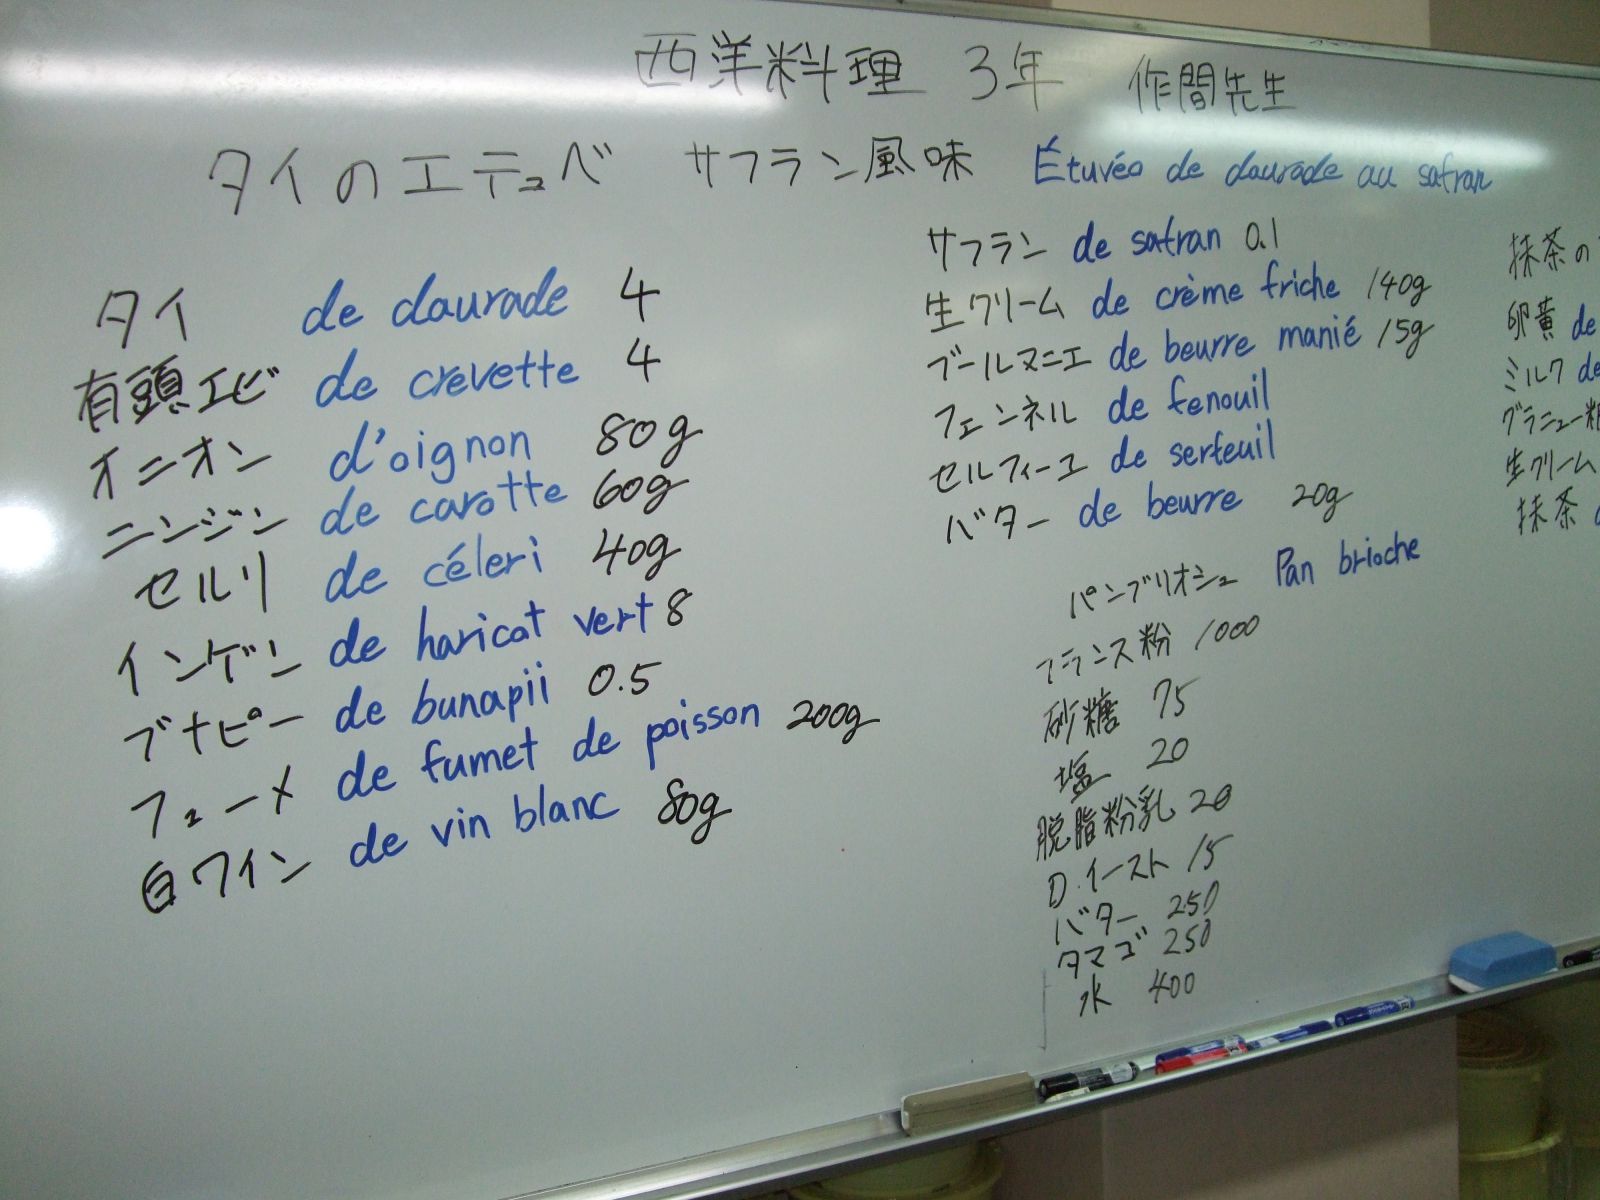 西洋料理 3年 作間先生
タイのエテュベ サフラン風味 Étuvéo de daurade au safran
タイ de daurade 4
有頭エビ de crevette 4
オニオン d'oignon 80g
ニンジン de carotte 60g
セルリ de céleri 40g
インゲン de haricot vert 8
ブナピー de bunapii 0.5
フューメ de fumet de poisson 200g
白ワイン de vin blanc 80g
サフラン de safran 0.1
生クリーム de crème friche 140g
ブールマニエ de beurre manié 15g
フェンネル de fenouil
セルフィーユ de serfeuil
バター de beurre 20g
パンブリオシュ Pan brioche
フランス粉 1000
砂糖 75
塩 20
脱脂粉乳 20
D.イースト 15
バター 250
タマゴ 250
水 400
抹茶の
卵黄 de
ミルク de
グラニュー糖
生クリーム
抹茶